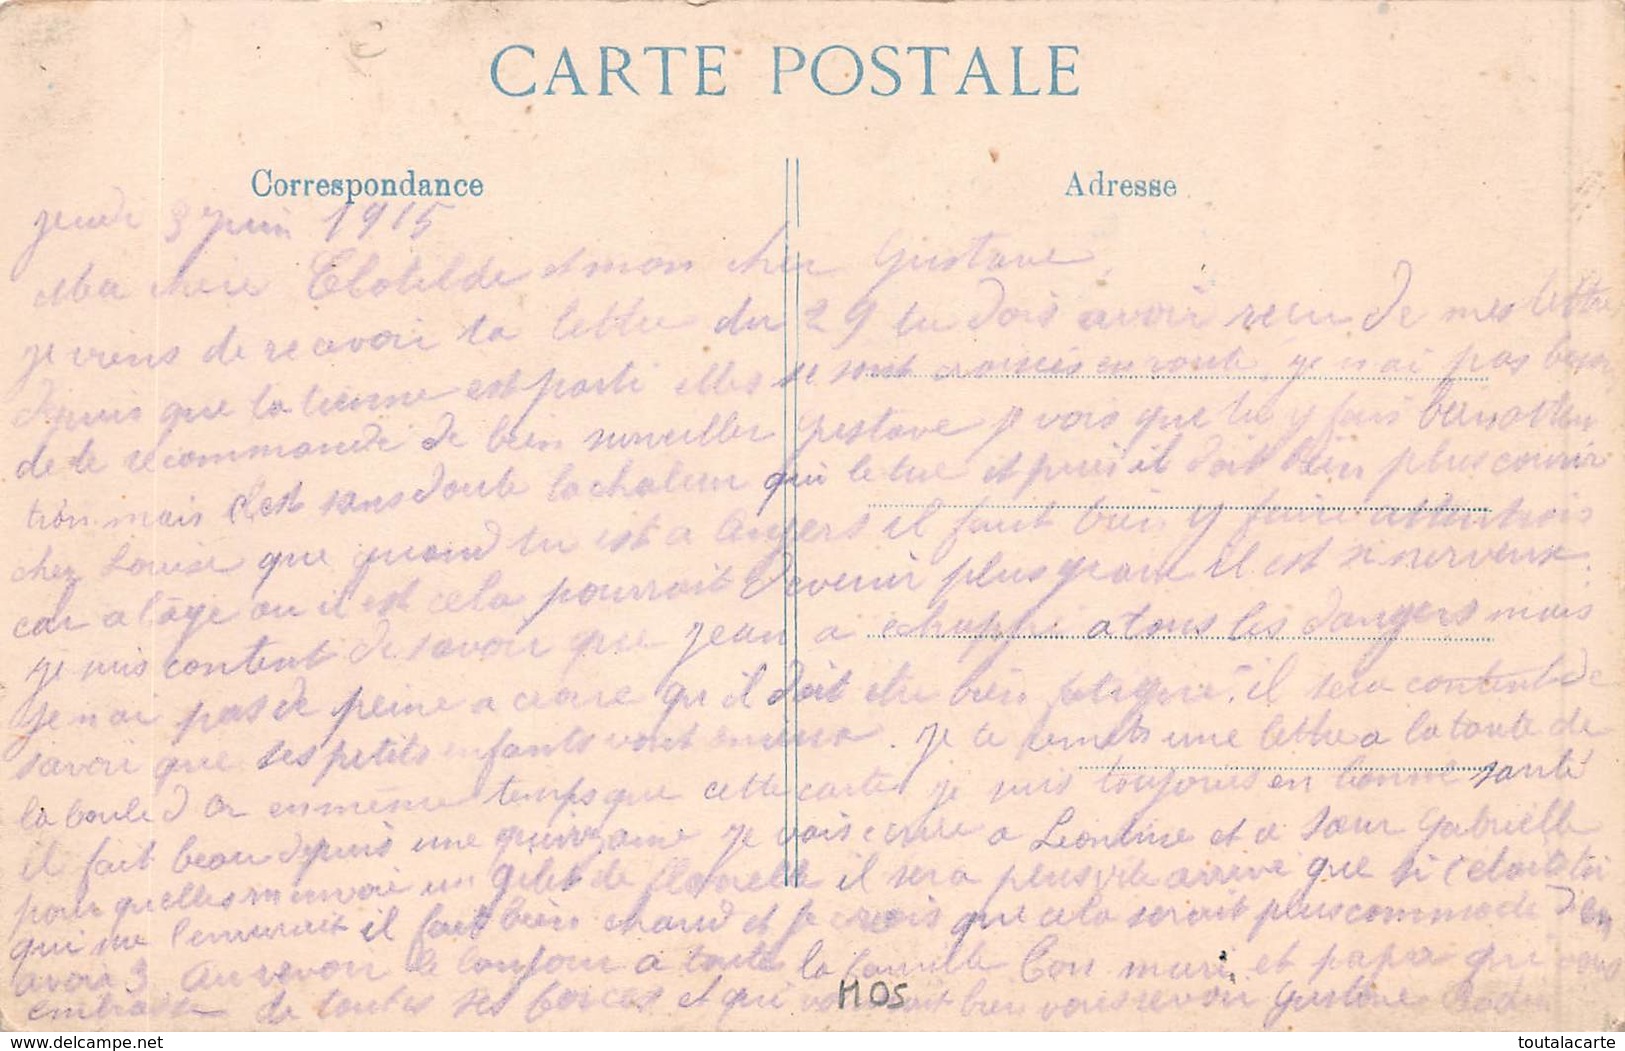 CARTE POSTALE
Correspondance
Adresse
jeudi 3 juin 1915
Ma chere Clotilde et mon cher Gustave,
je viens de recevoir ta lettre du 29 tu dois avoir recu de mes lettres
depuis que la tienne est parti elles se sont croisées en route, je n ai pas besoin
de te recommande de bien surveiller Gustave je vois que tu y fais bien atten
tion mais c est sans doute la chaleur qui le tue et puis il doit bien plus courir
chez Louise que quand tu est a Angers il faut bien y faire attention
car a l âge ou il est cela pourrait devenir plus grave il est si nerveux.
je suis content de savoir que Jean a echappé a tous les dangers mais
je n ai pas de peine a croire qu il doit etre bien fatigué. il sera content de
savoir que ses petits enfants vont mieux. je te remets une lettre a la tante de
la boule d or en même temps que cette carte je suis toujours en bonne santé
il fait beau depuis une quinzaine je vais ecrire a Leontine et a sœur Gabrielle
pour quelles m envoie un gilet de flanelle il sera plus vite arrivé que si c etait toi
qui me l envoirait il fait bien chaud et je crois que cela serait plus commode d en
avoir 3 Au revoir le bonjour a toute la famille Ton mari et papa qui vous
embrasse de toutes ses forces et qui voudrait bien vous revoir Gustave
MOS
delcampe.net
toutalacarte